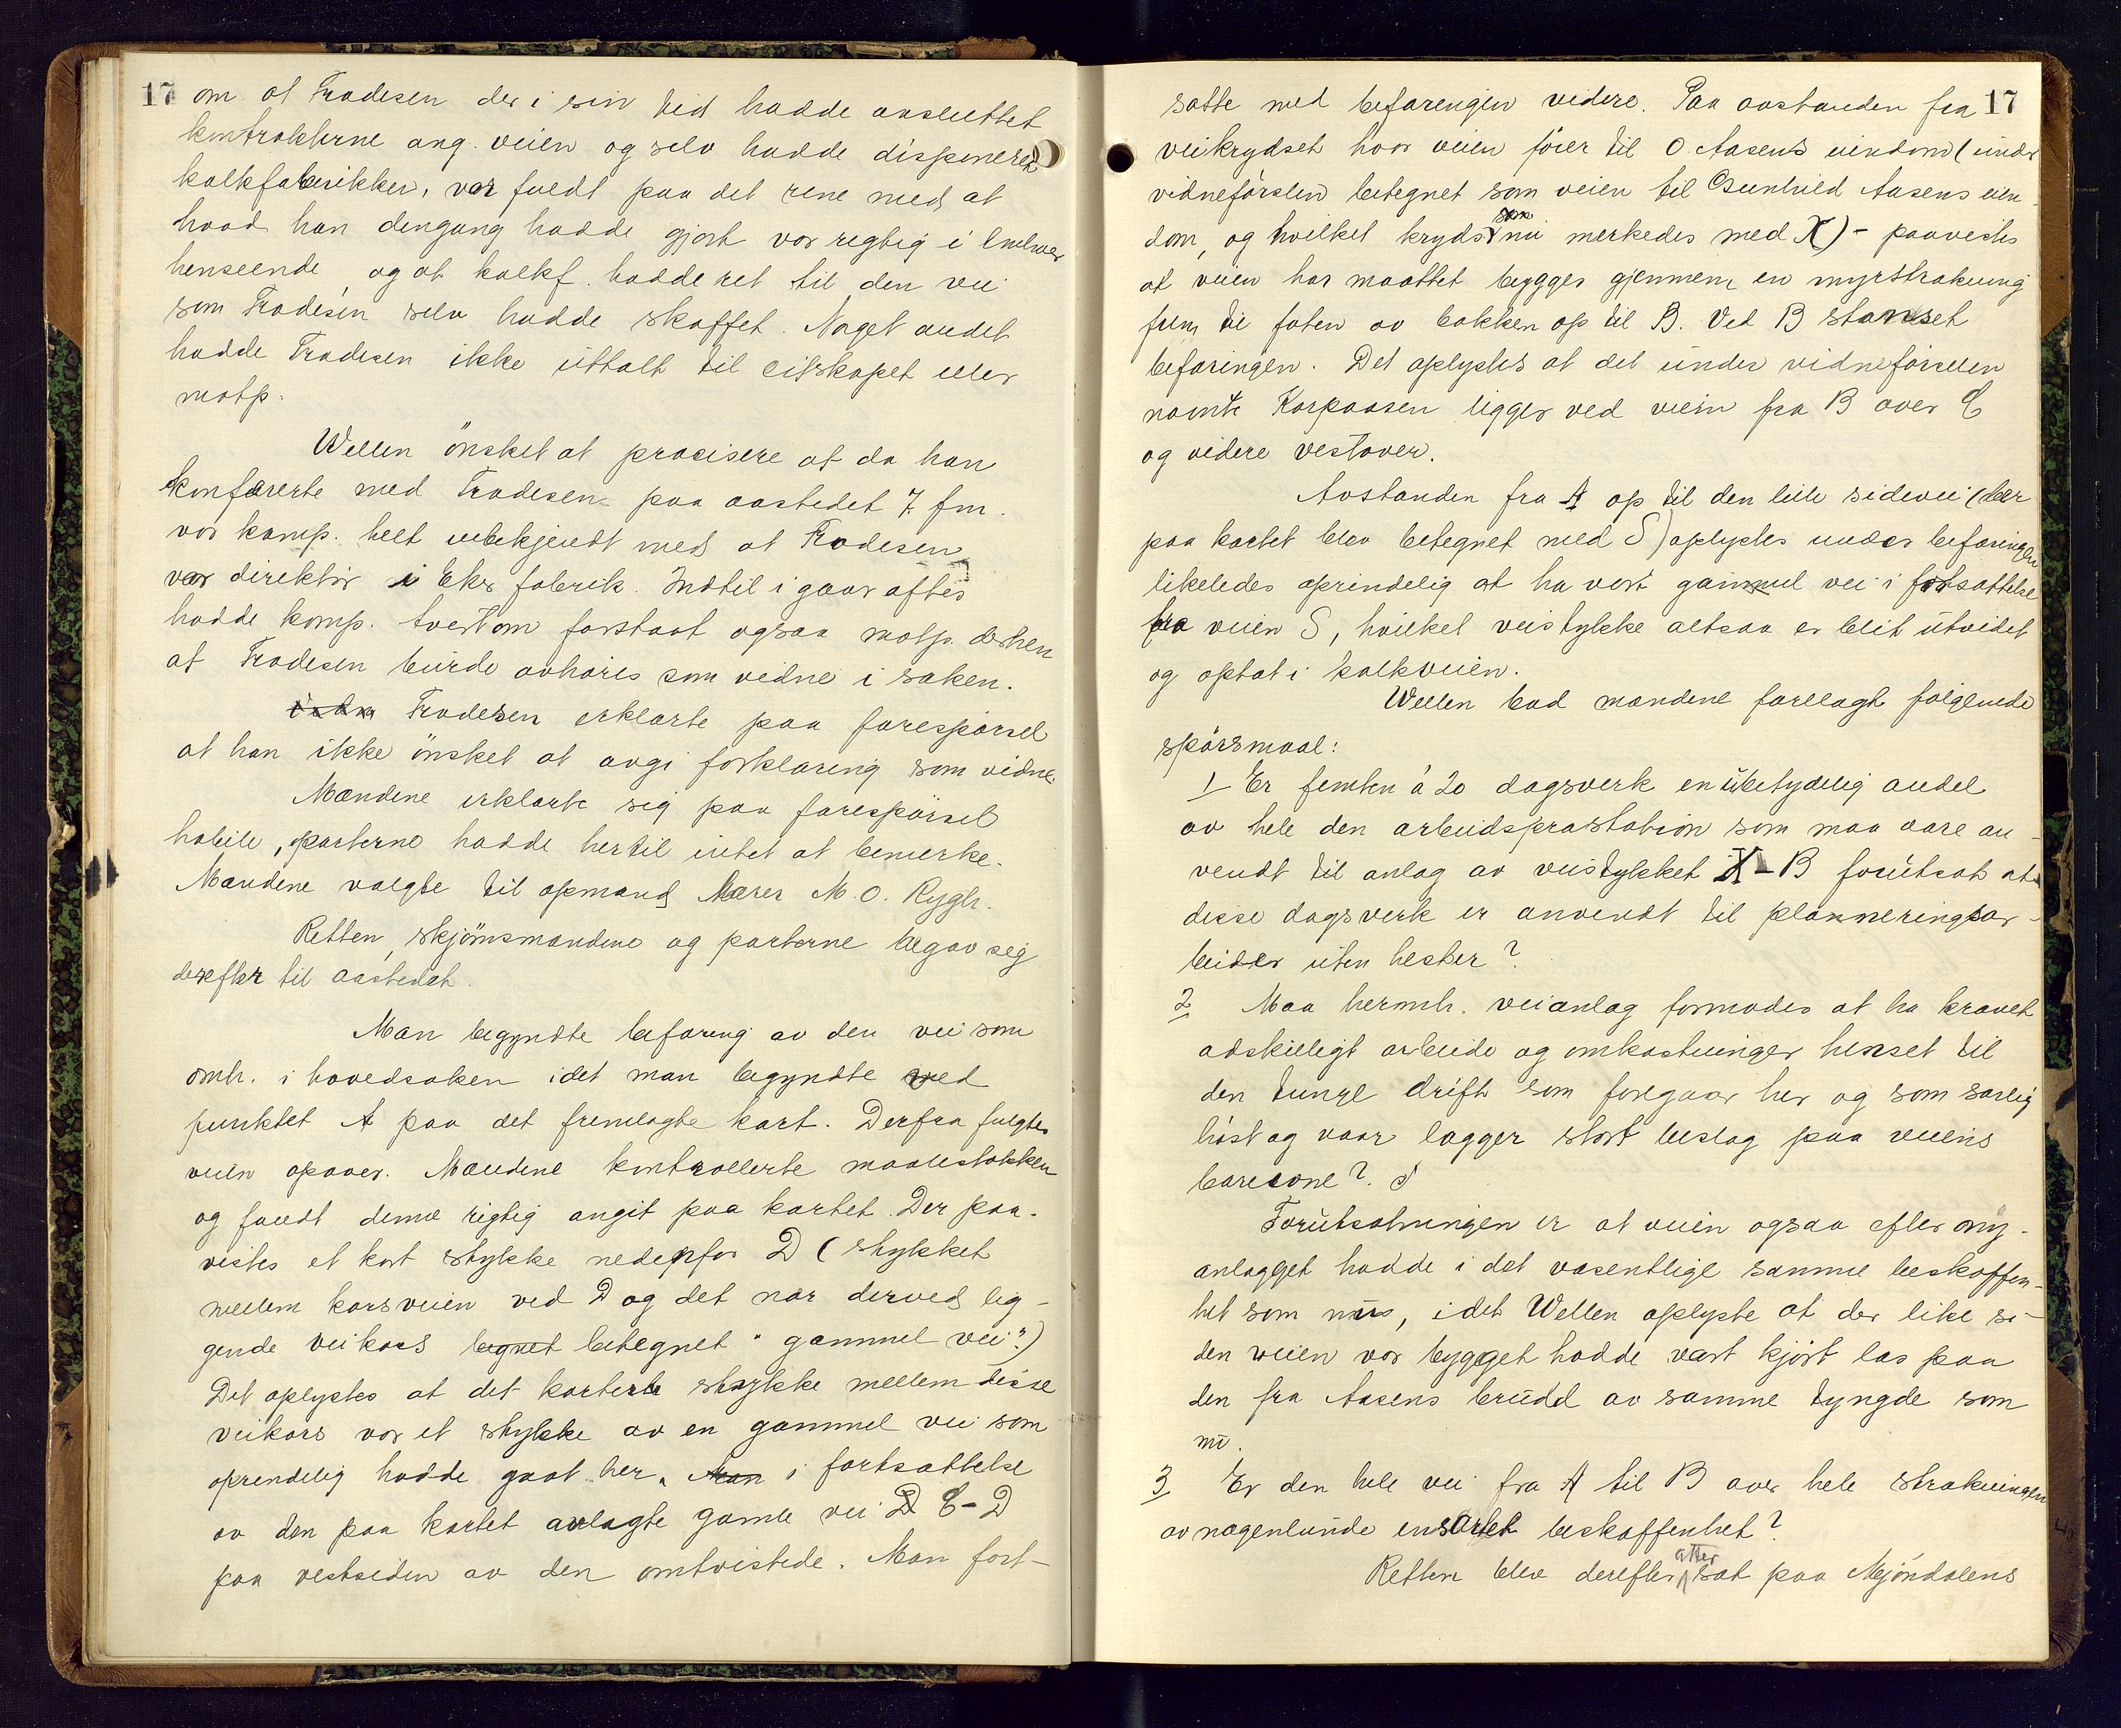 17 om at Fradesen der i sin tid hadde avsluttet
kontrakterne ang. veien og selv hadde disponeret
kalkfabrikken, var fuldt paa det rene med at
hvad han dengang hadde gjort var regtig i enhver
henseende og at kalkf. hadde ret til den vei
som Fradesen selv hadde skaffet. Noget andet
hadde Fradesen ikke uttalt til eitskapet eller
motp.
Wellen önsket at præcisere at da han
konfererte med Fradesen paa aastedet 7. fm.
var komp. helt ubekjendt med at Fradesen
var direktör i Eker fabrik. Indtil i gaar aftes
hadde komp. tvertom forstaat ogsaa motp. derhen
at Fradesen burde avhöres som vidne i saken.
Fradesen erklærte paa forespörsel
at han ikke önsket at avgi forklaring som vidne.
Mændene erklærte sig paa forespörsel
habile, parterne hadde hertil intet at bemerke.
Mændene valgte til opmand Lærer M. O. Rygh.
Retten, skjönsmændene og parterne begav sig
derefter til aastedet.
Man begyndte befaring av den vei som
omh. i hovedsaken idet man begyndte ved
punktet A paa det fremlagte kart. Derfra fulgtes
veien opover. Mændene kontrollerte maalestokken
og fandt denne rigtig angit paa kartet. Der paa-
vistes et kort stykke nedenfor D (stykket
mellem korsveien ved D og det nær derved lig-
gende veikors begnet betegnet "gammel vei".)
Det oplystes at det korterte stykke mellem disse
veikors var et stykke av en gammel vei som
oprendelig hadde gaat her. Man i fortsættelse
av den paa kartet avlagte gamle vei D C-D
paa vestsiden av den omtvistede. Man fort-
satte med befaringen videre. Paa avstanden fra 17
veikrydset hvor veien förer til O Aasens eiendom (under
vidneförslen betegnet som veien til Gunhild Aasens eien-
dom, og hvilket kryds som nu merkedes med X) - paavistes
at veien har maattet bygges gjennem en myrstrækning
frem til foten av bakken op til B. Ved B stanset
befaringen. Det oplystes at det under vidneförselen
nævnte Korpaasen ligger ved veien fra B over C
og videre vestover.
Avstanden fra A op til den lille sidevei (her
paa kartet blev betegnet med S) oplystes under befaringen
likeledes oprindelig at ha vært gammel vei i fortsættelse
fra veien S, hvilket veistykke altsaa er blit utvidet
og optat i kalkveien.
Wellen bad mændene forelagt fölgende
spörsmaal:
1 Er femten à 20 dagsverk en ubetydelig andel
av hele den arbeidspræstation som maa være an-
vendt til anlæg av veistykket X-B forutsat at
disse dagsverk er anvendt til planneringsar-
beider uten hester?
2 Maa hermh. veianlæg formodes at ha krævet
adskilligt arbeide og omkostninger henset til
den tunge drift som foregaar her og som særlig
höst og vaar lægger stort beslag paa veiens
bæreevne?
Forutsætningen er at veien ogsaa efter ny-
anlægget hadde i det væsentlige samme beskaffen-
het som nu, idet Wellen oplyste at der like si-
den veien var bygget hadde vært kjört læs paa
den fra Aasens brudd av samme tyngde som
nu.
3 Er den hele vei fra A til B over hele strækningen
av nogenlunde ensartet beskaffenhet?
Retten blev derefter atter sat paa Mjöndalens